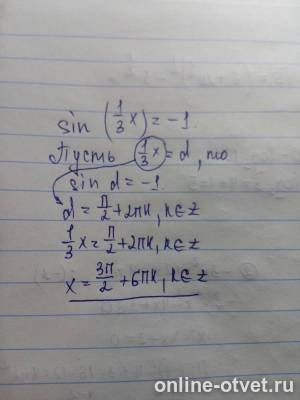 sin (1/3 x) = -1.
Пусть 1/3 x = d, то
sin d = -1.
d = π/2 + 2πk, k∈z
1/3 x = π/2 + 2πk, k∈z
x = 3π/2 + 6πk, k∈z
online-otvet.ru